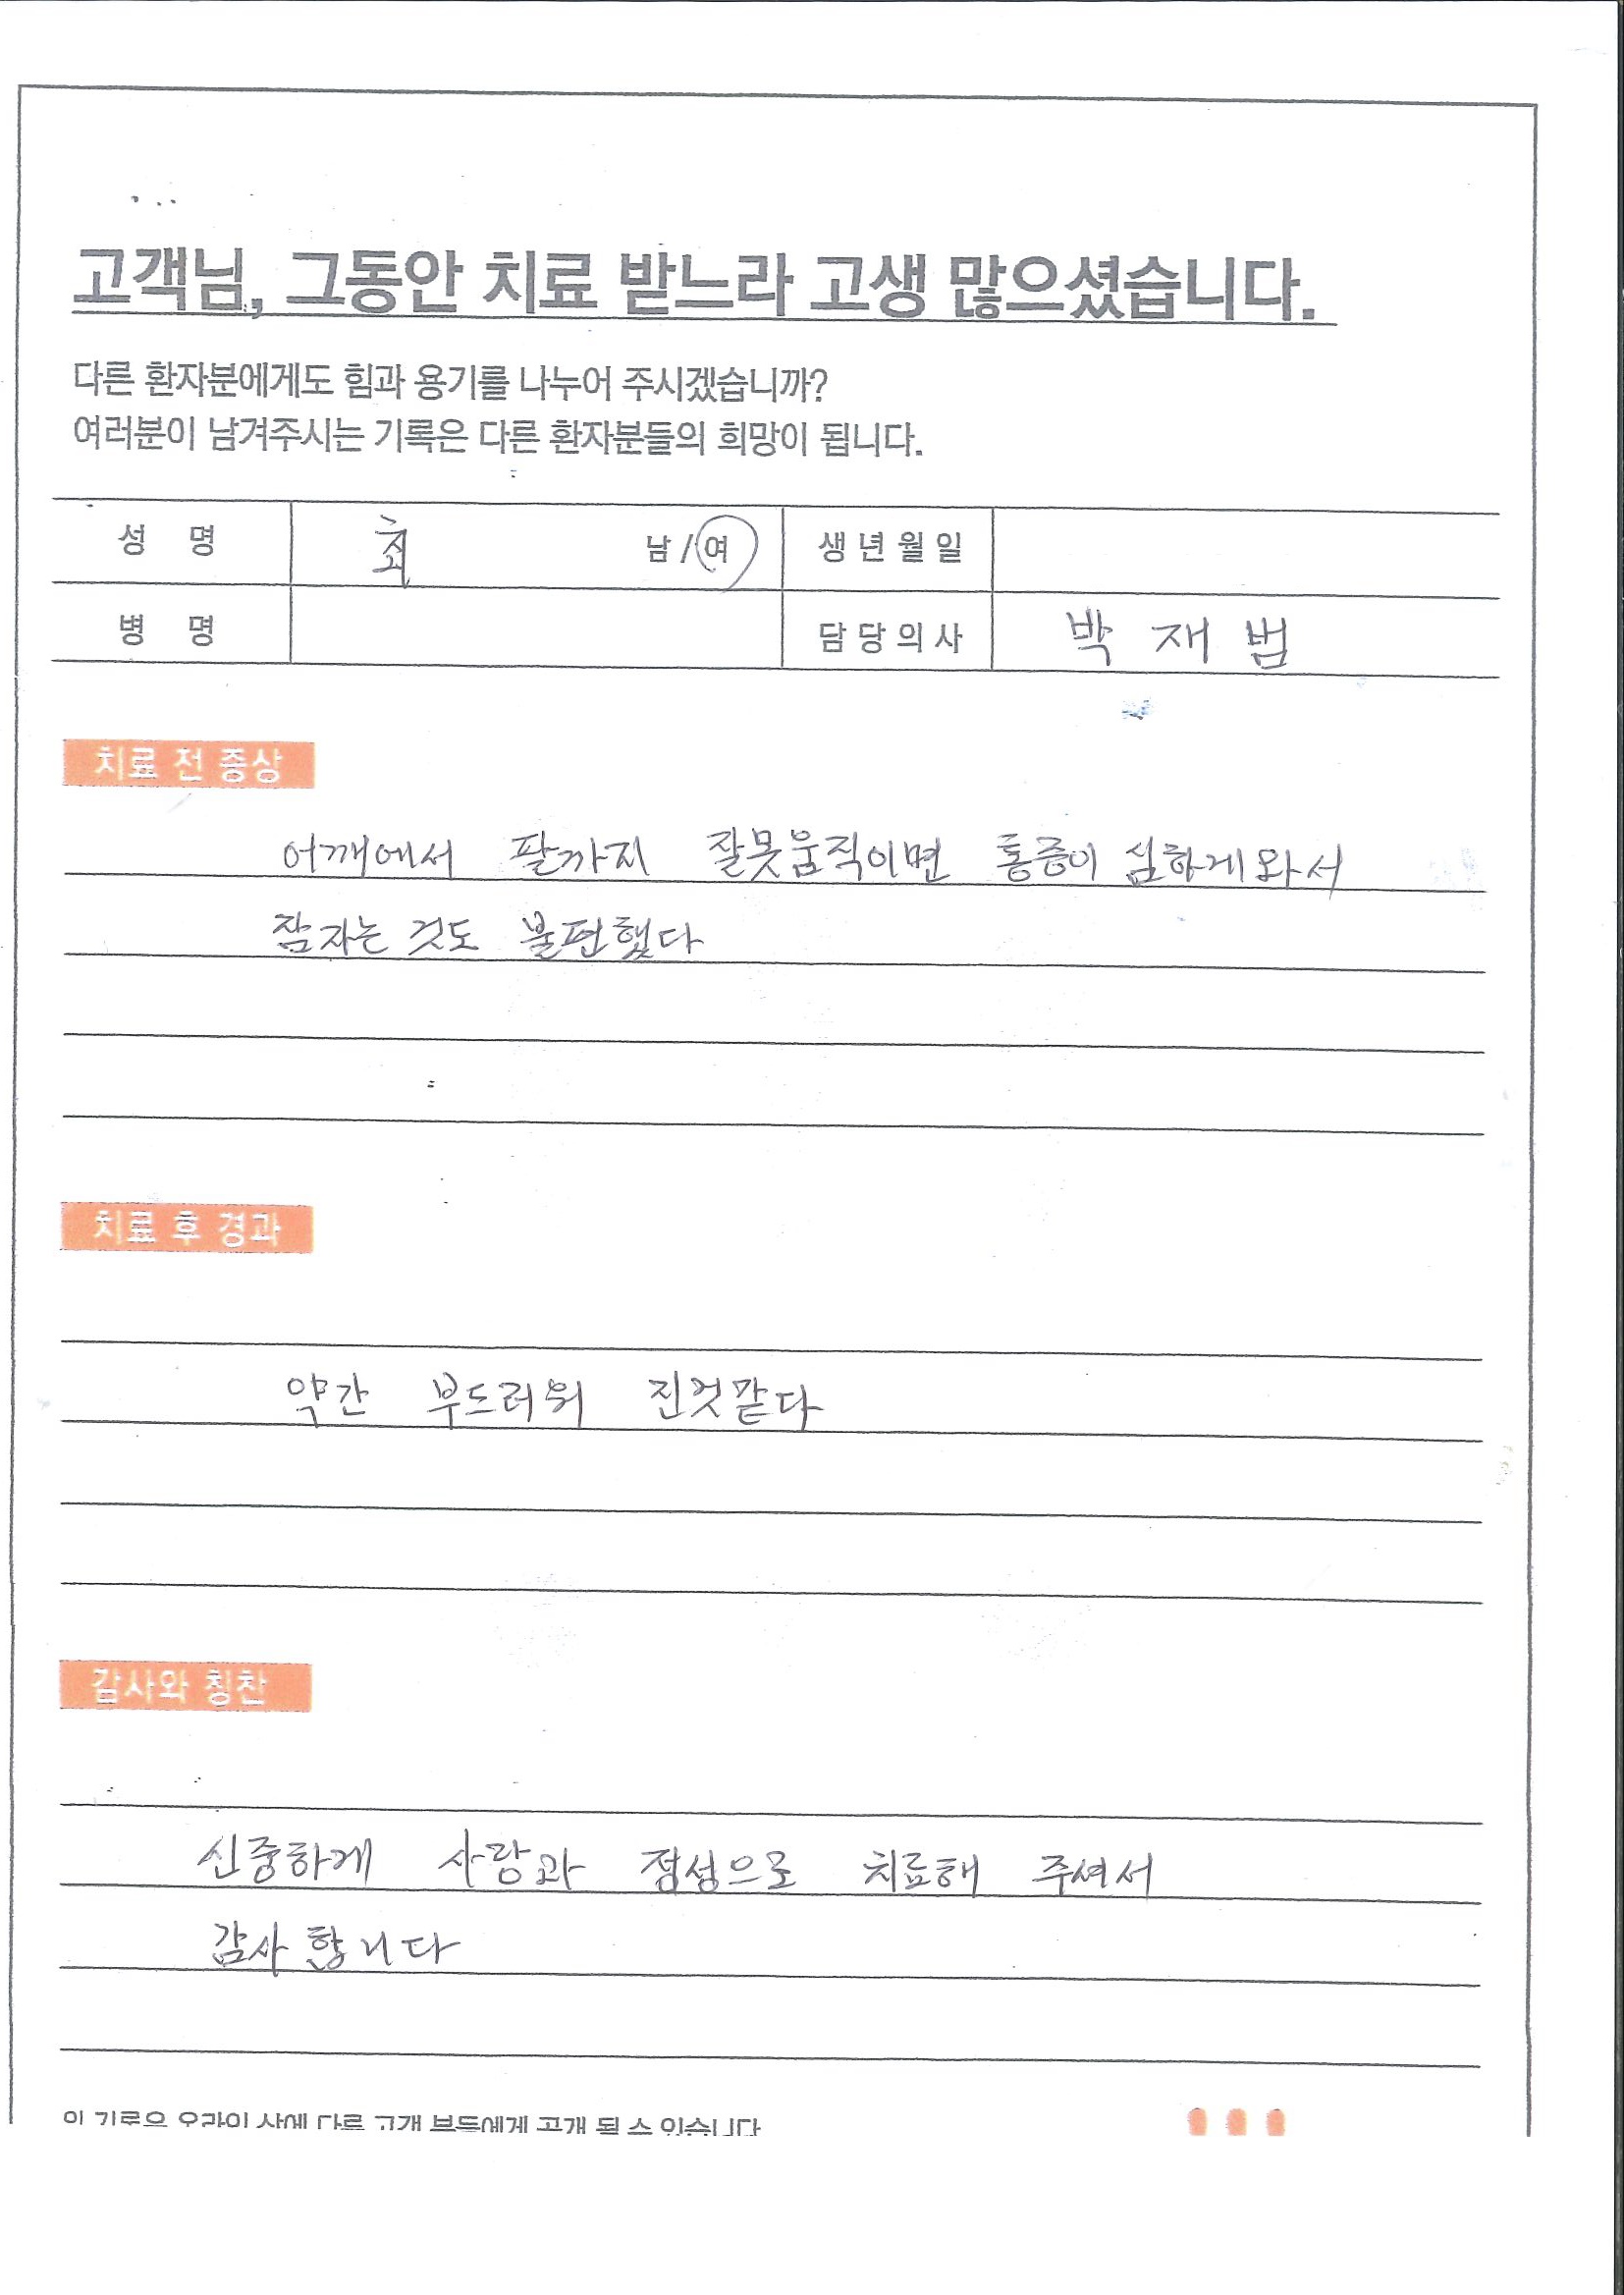 고객님, 그동안 치료 받느라 고생 많으셨습니다.
다른 환자분에게도 힘과 용기를 나누어 주시겠습니까?
여러분이 남겨주시는 기록은 다른 환자분들의 희망이 됩니다.
성 명 최 남 / 여 생년월일
병 명 담당의사 박 재 범
치료 전 증상
어깨에서 팔까지 잘못움직이면 통증이 심하게와서
잠자는 것도 불편했다
치료 후 경과
약간 부드러워 진것같다
감사와 칭찬
신중하게 사랑과 정성으로 치료해 주셔서
감사 합니다
이 기록은 온라인 상에 다른 고객 분들에게 공개 될 수 있습니다